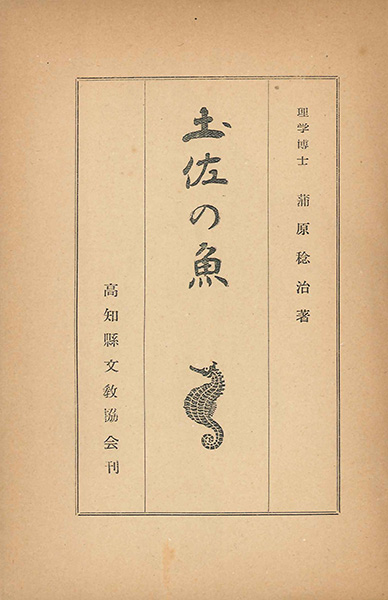 理学博士 蒲原稔治著
土佐の魚
高知縣文教協会刊